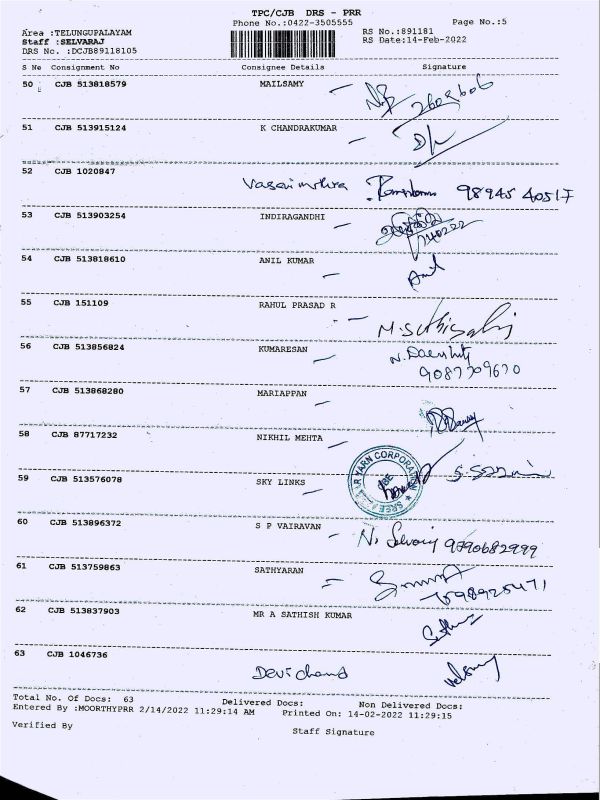 TPC/CJB DRS - PRR
Phone No.:0422-3505555 Page No.:5
Area :TELUNGUPALAYAM RS No.:891181
Staff :SELVARAJ RS Date:14-Feb-2022
DRS No. :DCJB89118105
S No Consignment No Consignee Details Signature
50 CJB 513818579 MAILSAMY
51 CJB 513915124 K CHANDRAKUMAR
52 CJB 1020847 98945 40517
53 CJB 513903254 INDIRAGANDHI
54 CJB 513818610 ANIL KUMAR
55 CJB 151109 RAHUL PRASAD R
56 CJB 513856824 KUMARESAN
9087709670
57 CJB 513868280 MARIAPPAN
58 CJB 87717232 NIKHIL MEHTA
YARN CORPORATION
59 CJB 513576078 SKY LINKS
60 CJB 513896372 S P VAIRAVAN
61 CJB 513759863 SATHYARAN
62 CJB 513837903 MR A SATHISH KUMAR
63 CJB 1046736 Devi chand
Total No. Of Docs: 63 Delivered Docs: Non Delivered Docs:
Entered By :MOORTHYPRR 2/14/2022 11:29:14 AM Printed On: 14-02-2022 11:29:15
Verified By Staff Signature